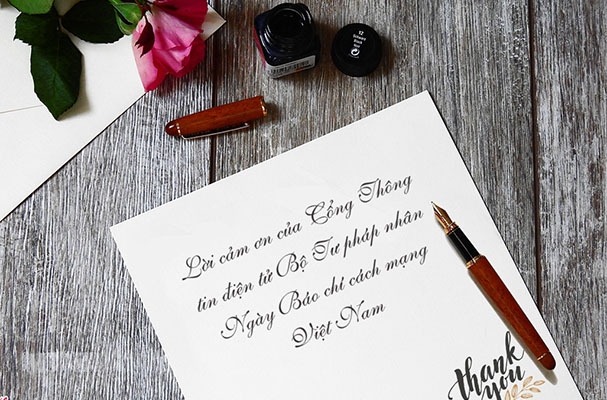 Lời cảm ơn của Cổng Thông
tin điện tử Bộ Tư pháp nhân
Ngày Báo chí cách mạng
Việt Nam
thank
you